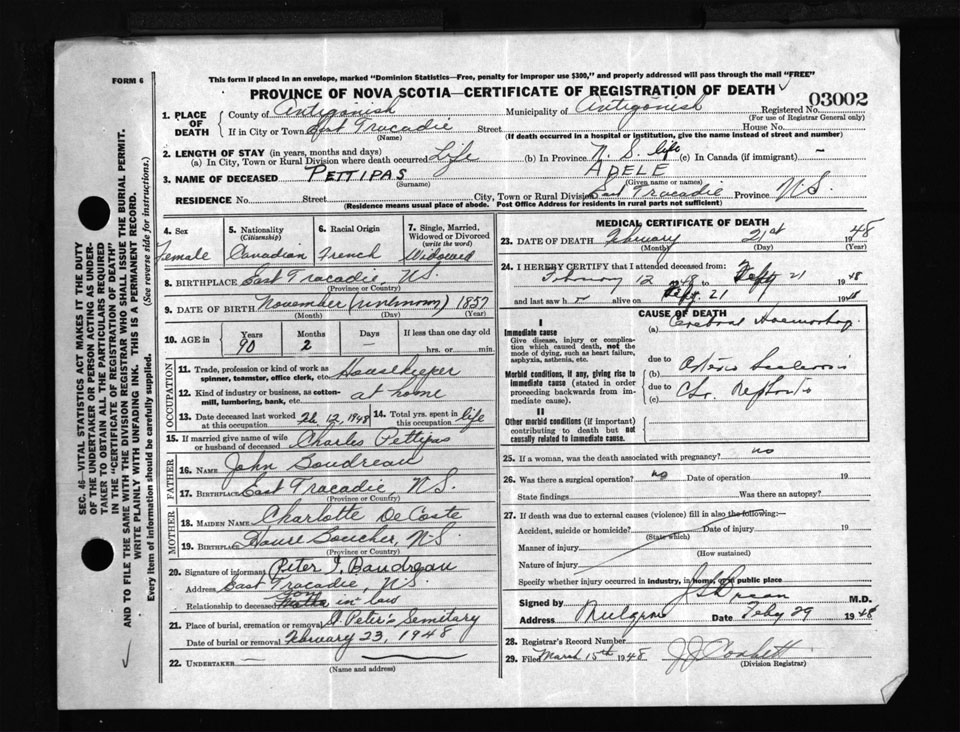 FORM 6
This form if placed in an envelope, marked "Dominion Statistics—Free, penalty for improper use $300," and properly addressed will pass through the mail "FREE"
PROVINCE OF NOVA SCOTIA—CERTIFICATE OF REGISTRATION OF DEATH
03002
1. PLACE OF DEATH
County of Antigonish Municipality of Antigonish Registered No.
(For use of Registrar General only)
If in City or Town East Tracadie Street House No.
(Name) (If death occurred in a hospital or institution, give the name instead of street and number)
2. LENGTH OF STAY (in years, months and days)
(a) In City, Town or Rural Division where death occurred Life (b) In Province N. S. life (c) In Canada (if immigrant) —
3. NAME OF DECEASED PETTIPAS ADELE
(Surname) (Given name or names)
RESIDENCE No. Street City, Town or Rural Division East Tracadie Province N.S.
(Residence means usual place of abode. Post Office Address for residents in rural parts not sufficient)
4. Sex 5. Nationality (Citizenship) 6. Racial Origin 7. Single, Married, Widowed or Divorced (write the word)
Female Canadian French Widowed
8. BIRTHPLACE East Tracadie, N.S.
(Province or Country)
9. DATE OF BIRTH November (unknown) 1857
(Month) (Day) (Year)
10. AGE in Years Months Days If less than one day old
90 2 — hrs. or min.
OCCUPATION
11. Trade, profession or kind of work as spinner, teamster, office clerk, etc. Housekeeper
12. Kind of industry or business, as cotton-mill, lumbering, bank, etc. at home
13. Date deceased last worked at this occupation Feb. 12, 1948 14. Total yrs. spent in this occupation life
15. If married give name of wife or husband of deceased Charles Pettipas
FATHER
16. NAME John Boudreau
17. BIRTHPLACE East Tracadie, N.S.
(Province or Country)
MOTHER
18. MAIDEN NAME Charlotte DeCoste
19. BIRTHPLACE Havre Boucher, N.S.
(Province or Country)
20. Signature of informant Peter J. Boudreau
Address East Tracadie, N.S.
Relationship to deceased son in law
21. Place of burial, cremation or removal St Peter's Semitary
Date of burial or removal February 23, 1948
22. UNDERTAKER —
(Name and address)
MEDICAL CERTIFICATE OF DEATH
23. DATE OF DEATH February 21st 1948
(Month) (Day) (Year)
24. I HEREBY CERTIFY that I attended deceased from:
February 12 1948 to Feby 21 1948
and last saw h er alive on Feby. 21 1948
CAUSE OF DEATH
I
Immediate cause
Give disease, injury or complication which caused death, not the mode of dying, such as heart failure, asphyxia, asthenia, etc.
(a) Cerebral Haemorrhage
due to
Morbid conditions, if any, giving rise to immediate cause (stated in order proceeding backwards from immediate cause).
(b) Arterio Sclerosis
due to
(c) Chr. Nephritis
II
Other morbid conditions (if important) contributing to death but not causally related to immediate cause.
25. If a woman, was the death associated with pregnancy? no
26. Was there a surgical operation? no Date of operation 19
State findings Was there an autopsy?
27. If death was due to external causes (violence) fill in also the following:
Accident, suicide or homicide? Date of injury 19
(State which)
Manner of injury
(How sustained)
Nature of injury
Specify whether injury occurred in industry, in home, or in public place
Signed by M.D.
Address Mulgrave Date Feby 29 1948
28. Registrar's Record Number
29. Filed March 15th 1948 J J Corbett
(Division Registrar)
SEC. 46—VITAL STATISTICS ACT MAKES IT THE DUTY
OF THE UNDERTAKER OR PERSON ACTING AS UNDER-
TAKER TO OBTAIN ALL THE PARTICULARS REQUIRED
IN THE "CERTIFICATE OF REGISTRATION OF DEATH"
AND TO FILE THE SAME WITH THE DIVISION REGISTRAR WHO SHALL ISSUE THE BURIAL PERMIT.
WRITE PLAINLY WITH UNFADING INK. THIS IS A PERMANENT RECORD.
Every item of information should be carefully supplied. (See reverse side for instructions.)